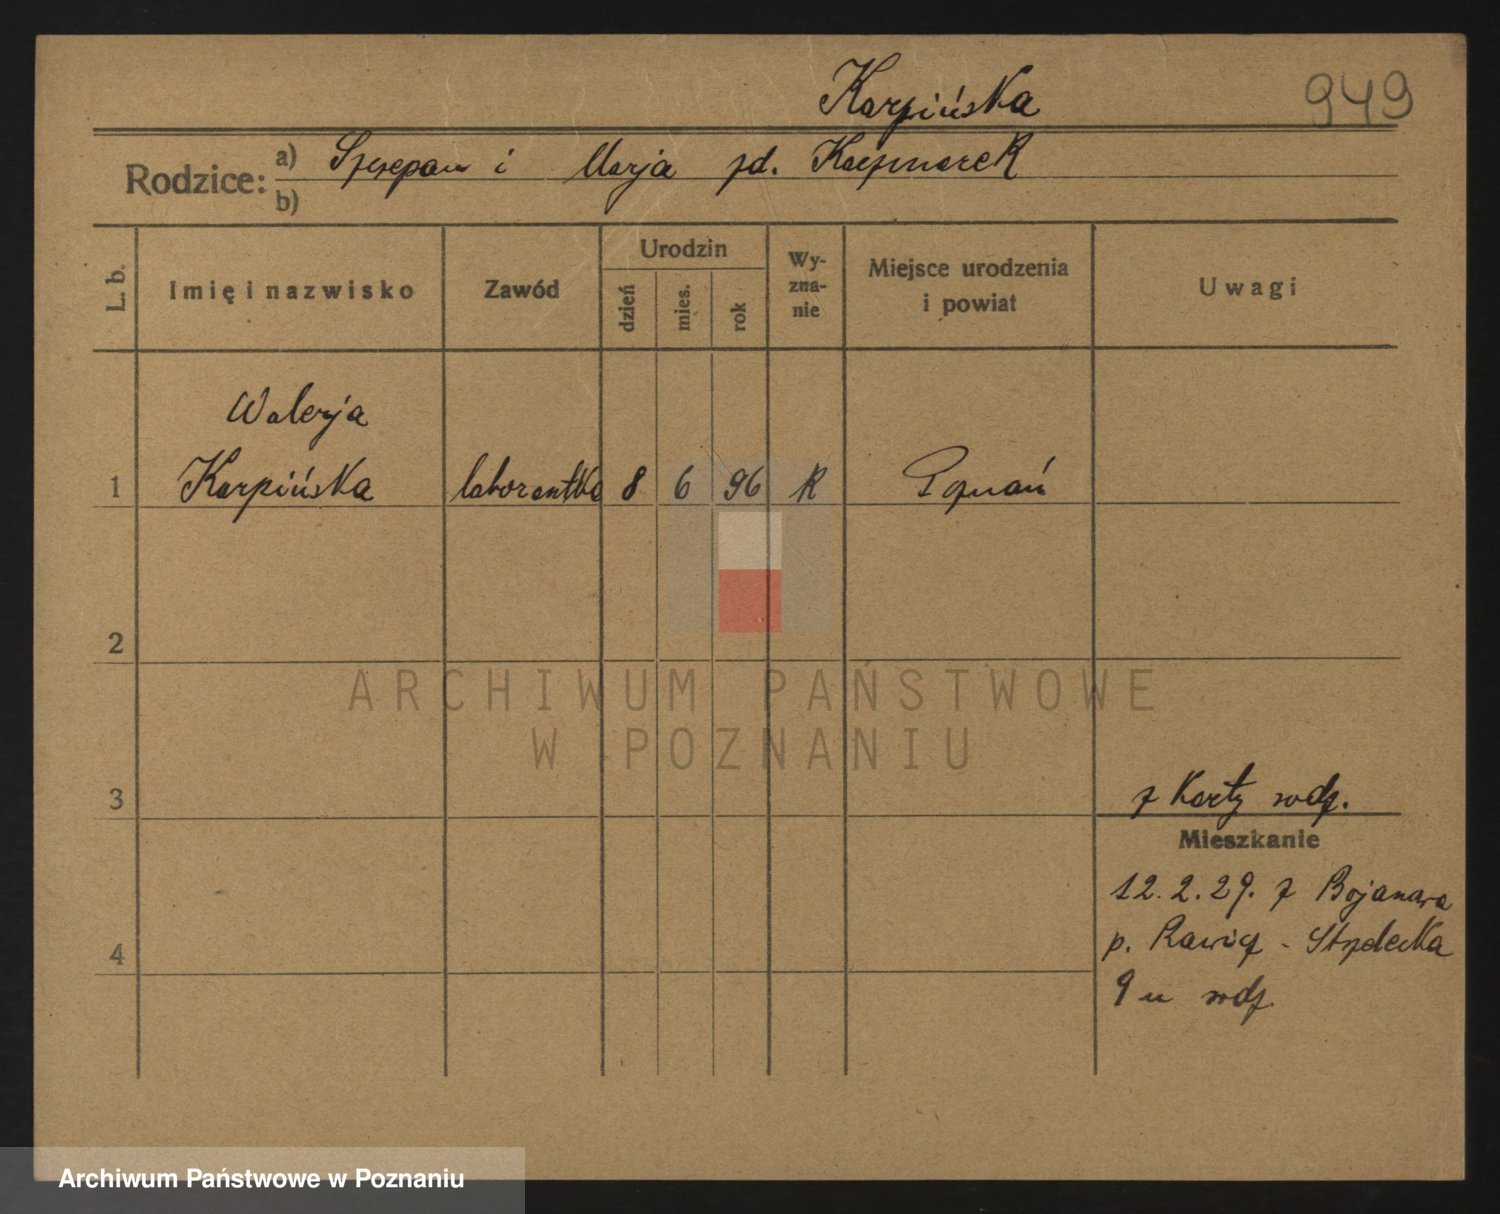 Karpińska
949
Rodzice:
a) Szczepan i Marja zd. Kaczmarek
b)
L. b. Imię i nazwisko Zawód Urodzin dzień mies. rok Wyznanie Miejsce urodzenia i powiat Uwagi
Walerja
1 Karpińska laborantka 8 6 96 R Poznań
2
ARCHIWUM PAŃSTWOWE
W POZNANIU
3 z Karty wdz.
Mieszkanie
12.2.29. z Bojanowa
p. Rawicz - Strzelecka
4
9 u wdz.
Archiwum Państwowe w Poznaniu